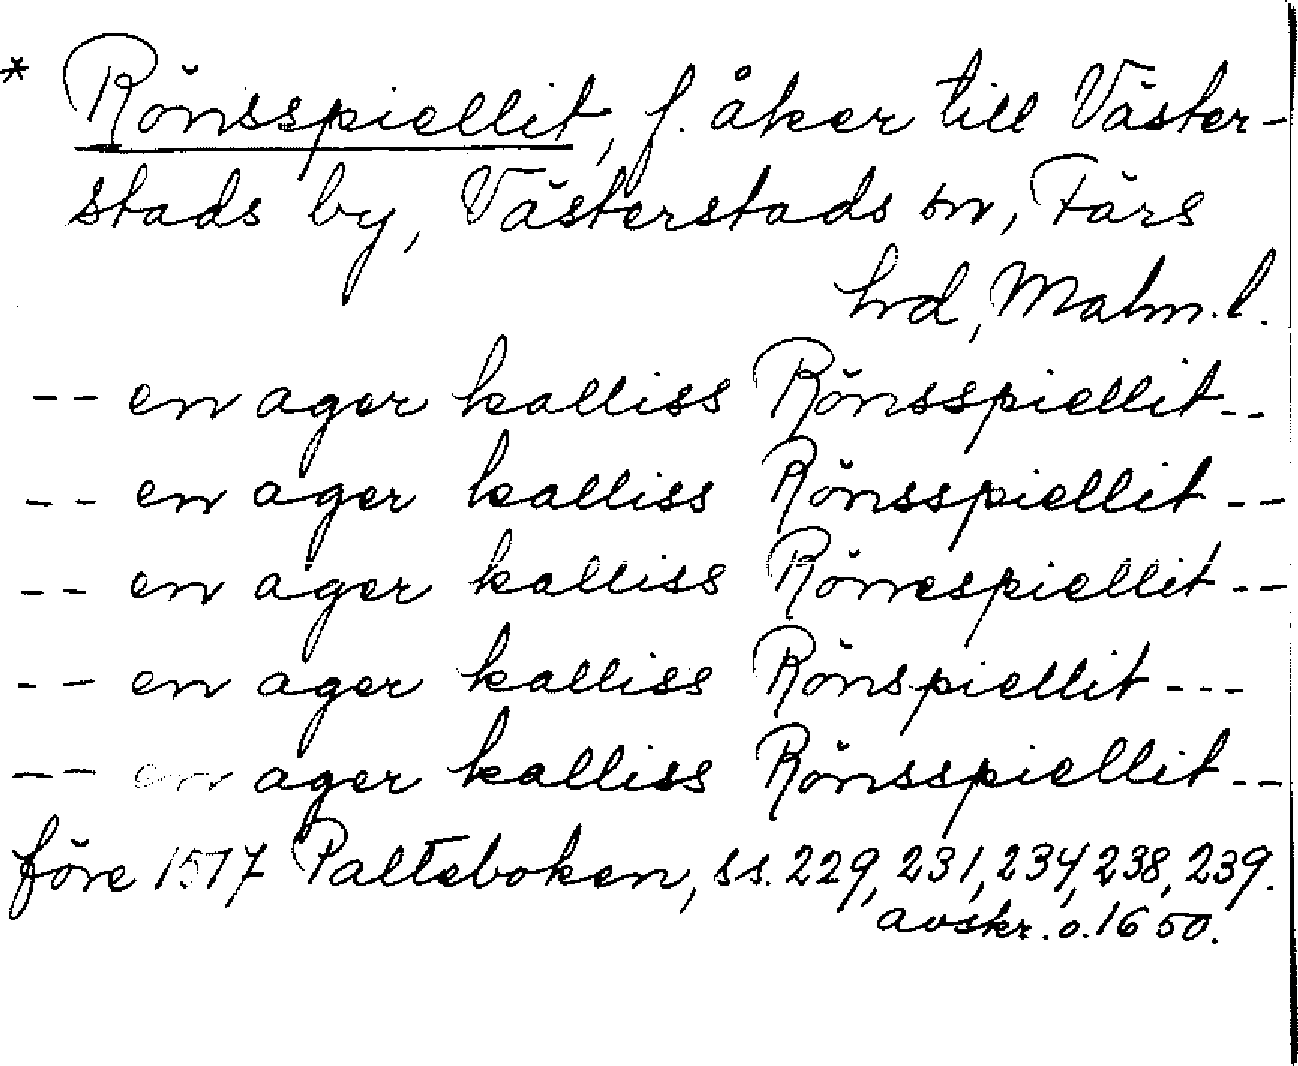 * Rönsspiellit, f. åker till Väster-
stads by, Västerstads sn, Färs
hrd, Malm. l.
-- en ager kalliss Rönsspiellit--
-- en ager kalliss Rönsspiellit--
-- en ager kalliss Rönespiellit--
-- en ager kalliss Rönspiellit---
-- en ager kalliss Rönsspiellit--
före 1517 Palteboken, ss. 229, 231, 234, 238, 239.
avskr. o. 1650.